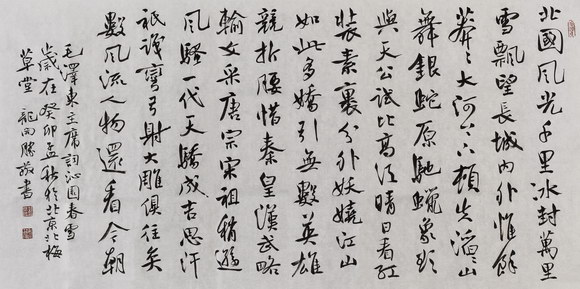 北國風光千里冰封萬里
雪飄望長城內外惟餘
莽々大河上下頓失滔々山
舞銀蛇原馳蠟象欲
與天公試比高須晴日看紅
裝素裹分外妖嬈江山
如此多嬌引無數英雄
競折腰惜秦皇漢武略
輸文采唐宗宋祖稍遜
風騷一代天驕成吉思汗
祇識彎弓射大雕俱往矣
數風流人物還看今朝
毛澤東主席詞沁園春雪
歲在癸卯孟秋於北京北梅
草堂 敬書